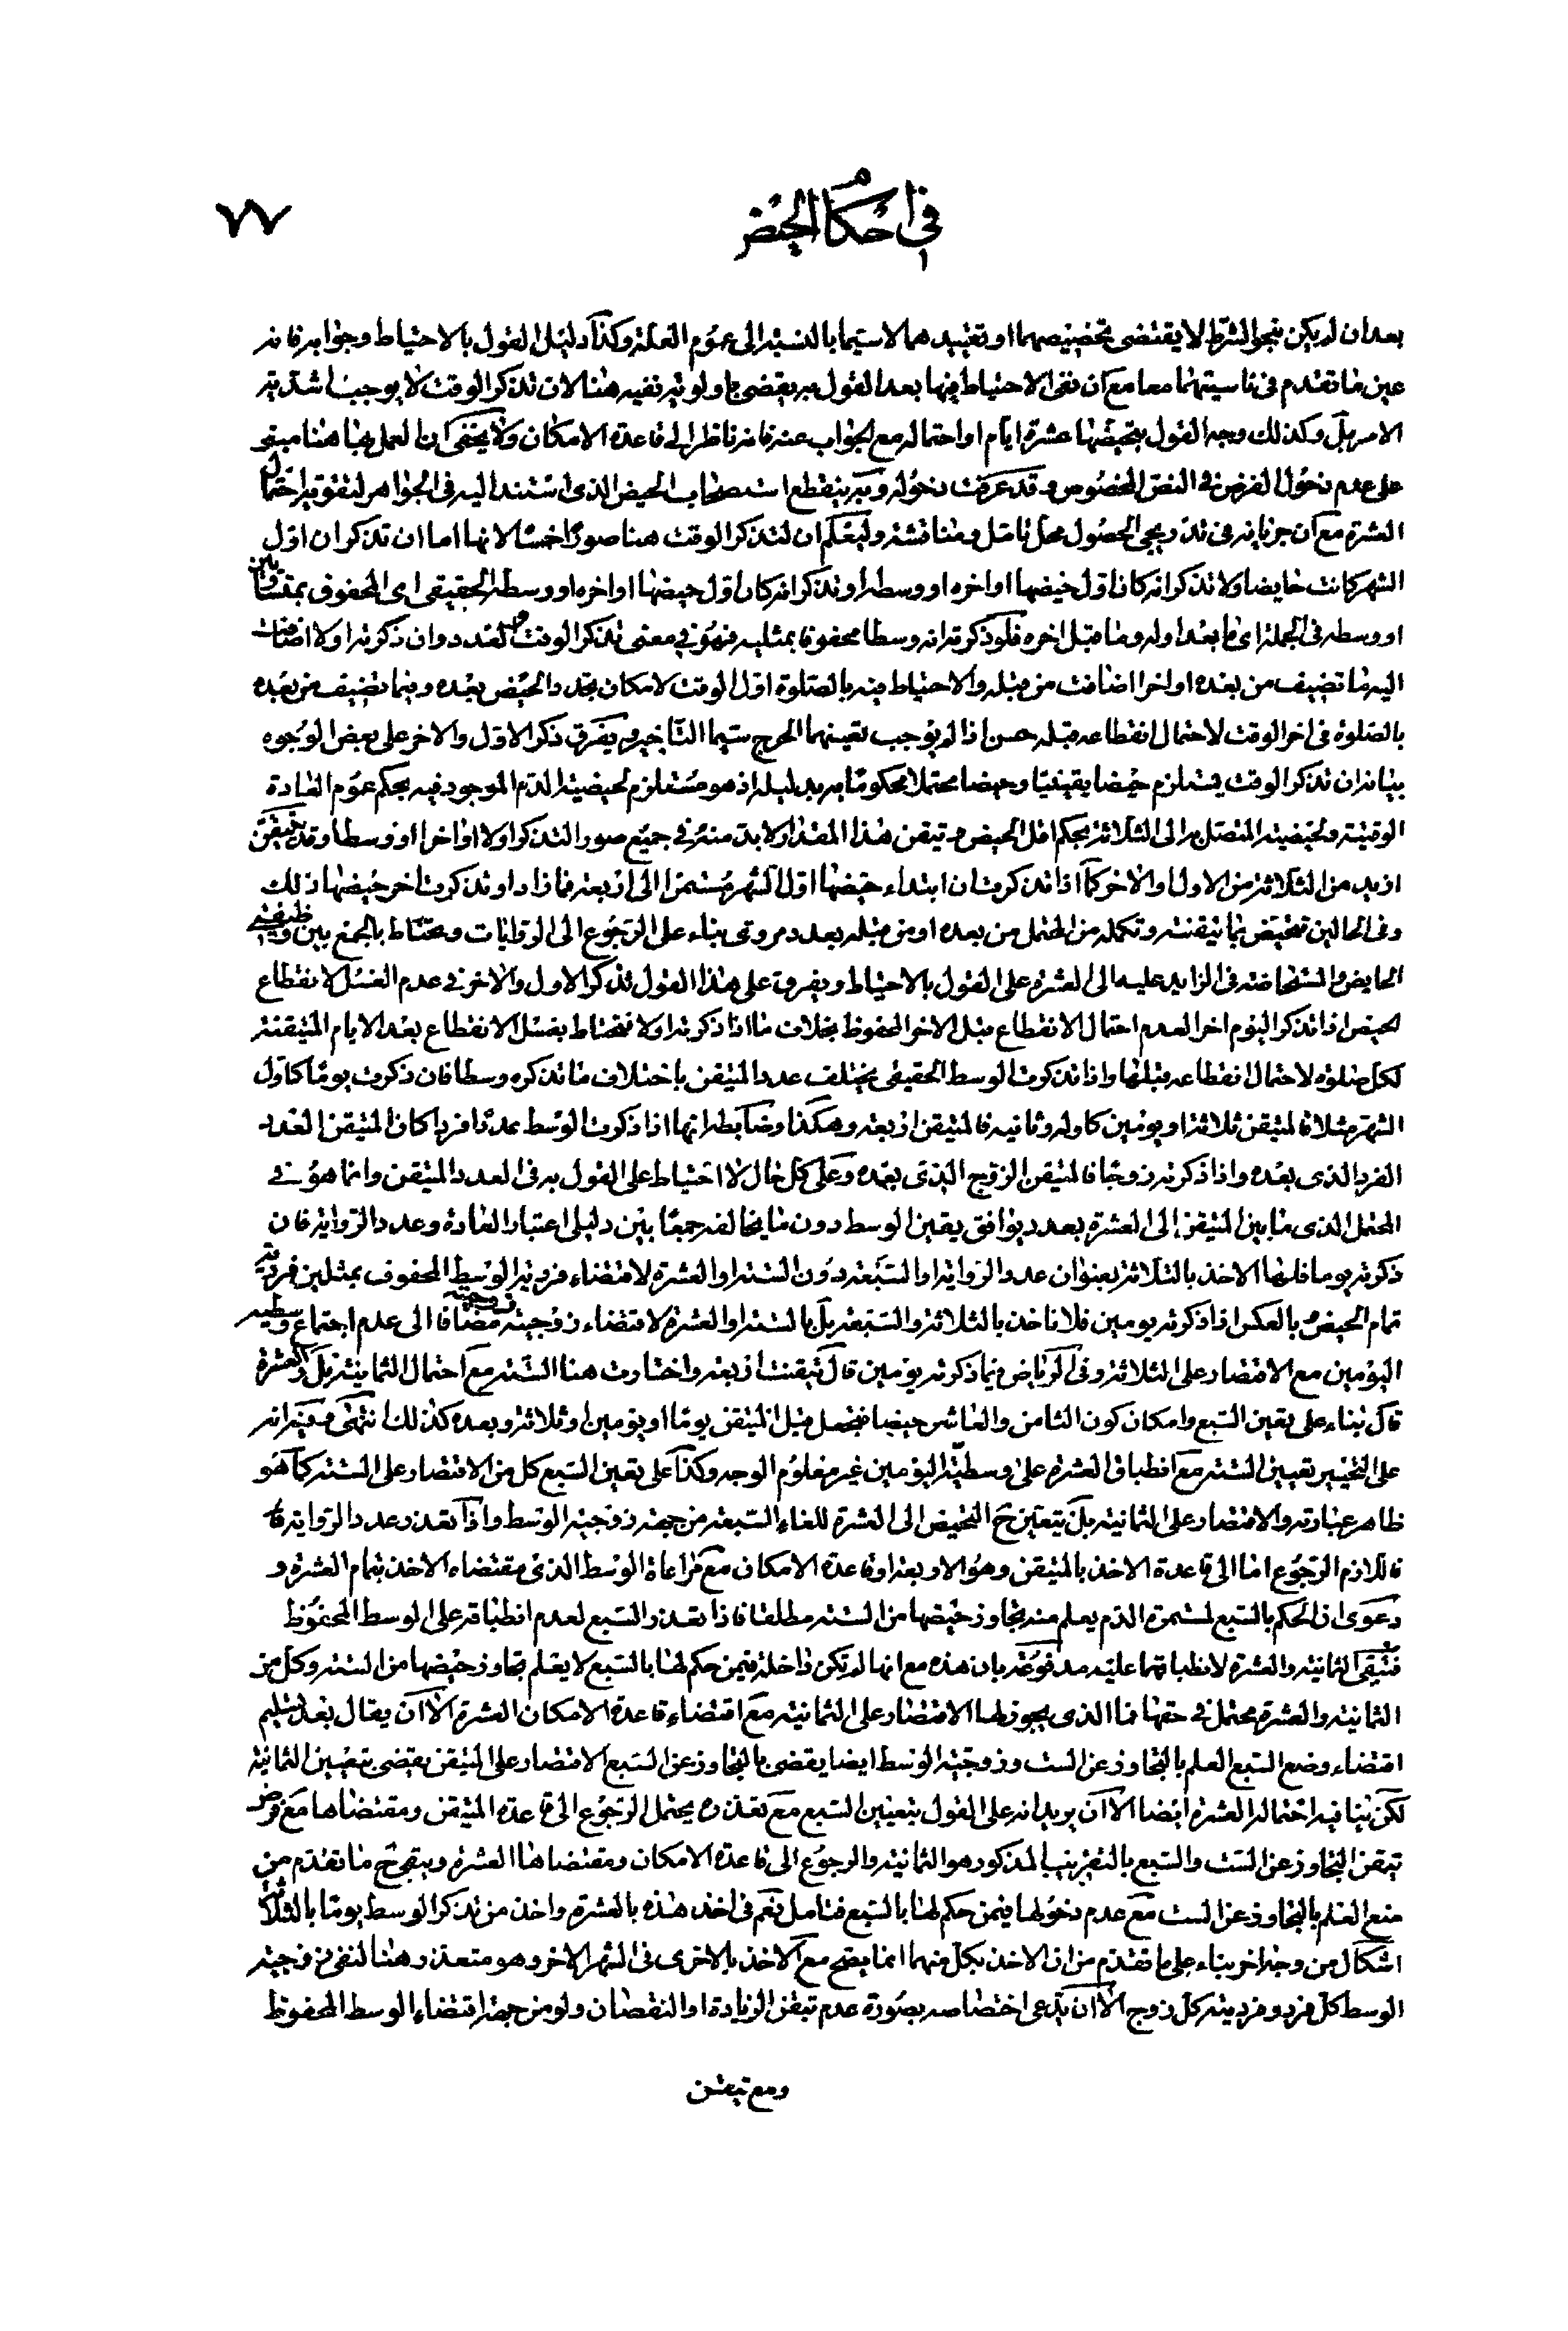 في احكام الحيض
٧٧
بعد ان لم يكن بنحو الشرط لا يقتضى تخصيصهما او تقييدهما لا سيما بالنسبة الى عموم العلة وكذا دليل القول بالاحتياط وجوابه فانه
عين ما تقدم في ناسيتهما معا مع ان نفى الاحتياط فيها بعد القول به يقضى باولوية نفيه هنا لان تذكر الوقت لا يوجب اشدية
الامر بل وكذلك وجه القول بتحيضها عشرة ايام او احتماله مع الجواب عنه فانه ناظر الى قاعدة الامكان ولا يخفى ان العمل بها هنا مبنى
على عدم دخول الفرض في النص المخصوص وقد عرفت دخوله وبه ينقطع استصحاب الحيض الذى استند اليه في الجواهر لتقوية احتمال
العشرة مع ان جريانه في تدريجى الحصول محل تامل ومناقشة وليعلم ان لتذكر الوقت هنا صورا خمسا لانها اما ان تذكر ان اول
الشهر كانت حايضا ولا تذكر انه كان اول حيضها او اخره او وسطه او تذكر انه كان اول حيضها او اخره او وسطه الحقيقى اى المحفوف بمتساويين
او وسطه في الجملة اى ما بعد اوله وما قبل اخره فلو ذكرته انه وسط محفوفا بمثليه فهو في معنى تذكر الوقت العدد وان ذكرته اولا اضافت
اليه ما تضيف من بعده او اخرا اضافت من قبله والاحتياط فيه بالصلوة اول الوقت لامكان تجدد الحيض بعده وفيما تضيف من بعده
بالصلوة في اخر الوقت لاحتمال انقطاعه قبله حسن اذا لم يوجب تعينهما الحرج سيما التاخير ويفرق ذكر الاول والاخر على بعض الوجوه
بيانه ان تذكر الوقت يستلزم حيضا يقينيا وحيضا محتملا محكوما به بدليله اذ هو مستلزم لحيضية الدم الموجود فيه بحكم عموم العادة
الوقتية ولحيضية المتصل به الى الثلاثة بحكم اقل الحيض وتيقن هذا المقدار لا بد منه في جميع صور التذكر اولا او اخرا او وسطا وقد تتيقن
ازيد من الثلاثة من الاول والاخر كما اذا تذكرت ان ابتداء حيضها اول الشهر مستمرا الى اربعة فما زاد او تذكرت اخر حيضها ذلك
وفى الحالين تتحيض بما تيقنته وتكمله من المحتمل من بعده او من قبله بعدد مروى بناء على الرجوع الى الروايات وتحتاط بالجمع بين وظيفتى
الحايض والمستحاضة في الزايد عليه الى العشرة على القول بالاحتياط ويفرق على هذا القول تذكر الاول والاخر في عدم الغسل لانقطاع
الحيض اذا تذكر اليوم اخرا لعدم احتمال الانقطاع قبل الاخر المحفوظ بخلاف ما اذا ذكرته اولا فتحتاط بغسل الانقطاع بعد الايام المتيقنة
لكل صلوة لاحتمال انقطاعه قبلها واذا تذكرت الوسط الحقيقى يختلف عدد المتيقن باختلاف ما تذكره وسطا فان ذكرت يوما كاول
الشهر مثلا فالمتيقن ثلاثة او يومين كاوله وثانيه فالمتيقن اربعة وهكذا وضابطه انها اذا ذكرت الوسط عددا فردا كان المتيقن العدد
الفرد الذى بعده واذا ذكرته زوجا فالمتيقن الزوج الذى بعده وعلى كل حال لا احتياط على القول به في العدد المتيقن وانما هو في
المحتمل الذى ما بين المتيقن الى العشرة بعدد يوافق يقين الوسط دون ما يخالفه جمعا بين دليلى اعتبار العادة وعدد الرواية فان
ذكرته يوما فلها الاخذ بالثلاثة بعنوان عدد الرواية او السبعة دون الستة او العشرة لاقتضاء فردية الوسط المحفوف بمثلين فردية
تمام الحيض بالعكس اذا ذكرته يومين فلا تاخذ بالثلاثة والسبعة بل بالستة او العشرة لاقتضاء زوجيته مضافا الى عدم اجتماع وسطية
اليومين مع الاقتصار على الثلاثة وفى الرياض فيما ذكرته يومين قال تيقنت اربعة واختارت هنا الستة مع احتمال الثمانية بل والعشرة
قال بناء على تعين السبع وامكان كون الثامن والعاشر حيضا فتجعل قبل المتيقن يوما او يومين او ثلاثة وبعده كذلك انتهى وفيه انه
على التخيير تعيين الستة مع انطباق العشرة على وسطية اليومين غير معلوم الوجه وكذا على تعين السبع كل من الاقتصار على الستة كما هو
ظاهر عبارته والاقتصار على الثمانية بل يتعين ح التحيض الى العشرة للغاء السبعة من جهة زوجية الوسط واذا تعذر عدد الرواية
فاللازم الرجوع اما الى قاعدة الاخذ بالمتيقن وهو الاربعة او قاعدة الامكان مع مراعاة الوسط الذى مقتضاه الاخذ بتمام العشرة و
دعوى ان الحكم بالسبع لمستمرة الدم يعلم منه تجاوز حيضها من الستة مطلقا فاذا تعذر السبع لعدم انطباقه على الوسط المحفوظ
فتبقى الثمانية والعشرة لانطباقهما عليه مدفوعة بان هذه مع انها لم تكن داخلة فيمن حكم لها بالسبع لا يعلم تجاوز حيضها من الستة وكل من
الثمانية والعشرة محتمل في حقها فما الذى يجوز لها الاقتصار على الثمانية مع اقتضاء قاعدة الامكان العشرة الا ان يقال بعد تسليم
اقتضاء وضع السبع العلم بالتجاوز عن الست وزوجية الوسط ايضا يقضى بالتجاوز عن السبع الاقتصار على المتيقن يقضى بتعيين الثمانية
لكن ينافيه احتماله العشرة ايضا الا ان يريد انه على القول بتعيين السبع مع تعذره يحتمل الرجوع الى قاعدة المتيقن ومقتضاها مع فرض
تيقن التجاوز عن الست والسبع بالتقريب المذكور هو الثمانية والرجوع الى قاعدة الامكان ومقتضاها العشرة ويبقى ح ما تقدم من
منع العلم بالتجاوز عن الست مع عدم دخولها فيمن حكم لها بالسبع فتامل نعم في اخذ هذه بالعشرة واخذ من تذكر الوسط يوما بالثلاثة
اشكال من وجه اخر بناء على ما تقدم من ان الاخذ بكل منهما انما يصح مع الاخذ بالاخرى في الشهر الاخر وهو متعذر هنا لنفى زوجية
الوسط كل فرد وفرديته كل زوج الا ان يدعى اختصاصه بصورة عدم تيقن الزيادة او النقصان ولو من جهة اقتضاء الوسط المحفوظ
ومع تيقن